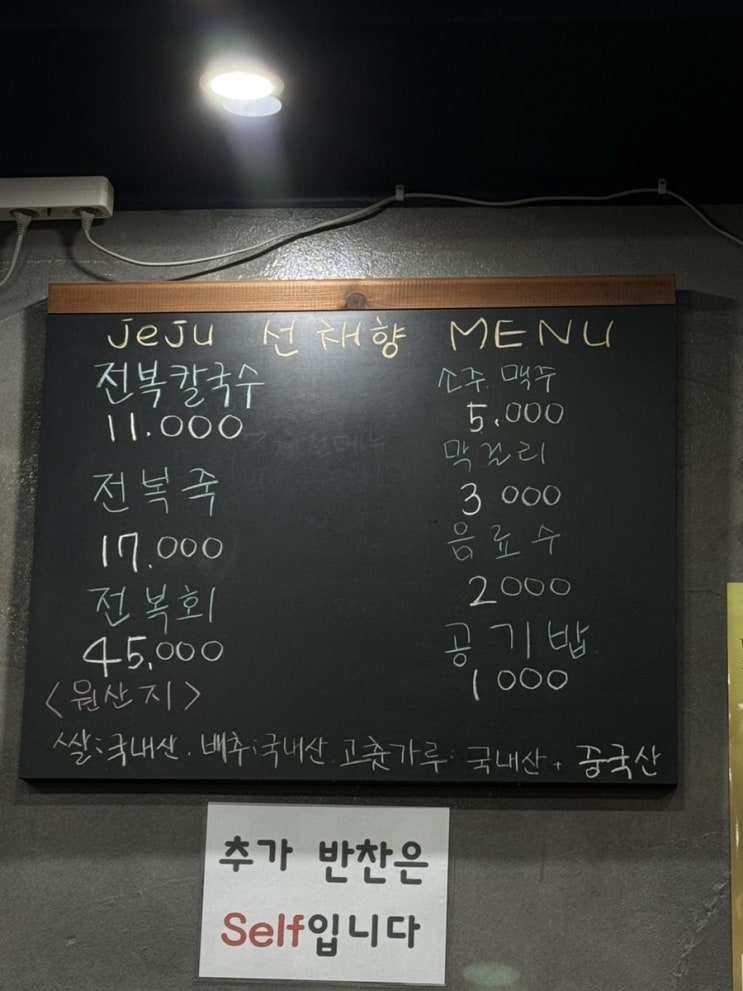 JeJu 선채향 MENU
전복칼국수
11.000
전복죽
17.000
전복회
45,000
소주.맥주
5.000
막걸리
3 000
음료수
2000
공기밥
1000
<원산지>
쌀:국내산. 배추:국내산. 고춧가루: 국내산+ 중국산
추가 반찬은
Self입니다